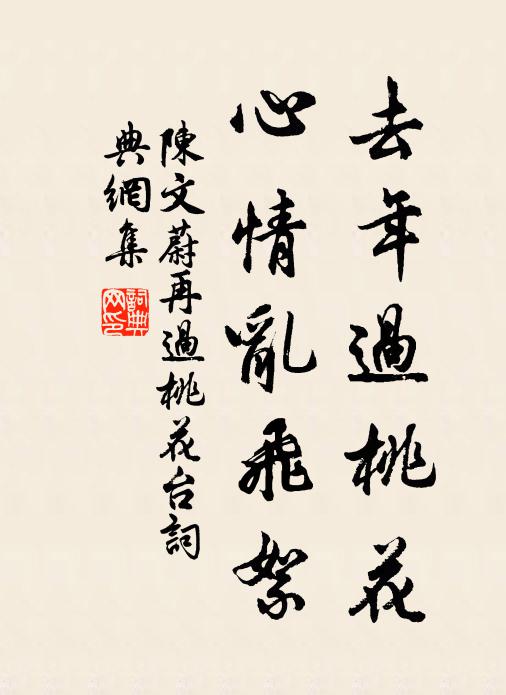 去年過桃花
心情亂飛絮
陳文蔚再過桃花台詞
典網集
詞典网印